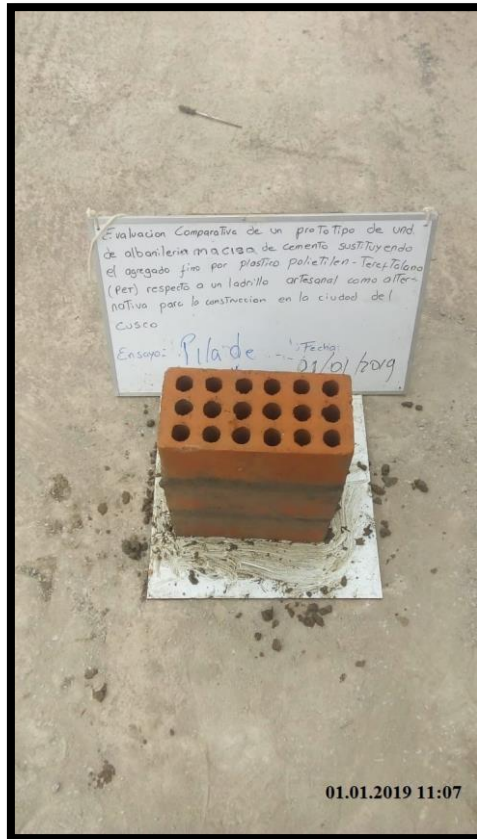 Evaluacion Comparativa de un prototipo de und.
de albanileria maciza de cemento sustituyendo
el agregado fino por plastico polietilen-Tereftalano
(PET) respecto a un ladrillo artesanal como alter-
nativa para la construccion en la ciudad del
cusco
Ensayo: Pila de Fecha:
01/01/2019
01.01.2019 11:07